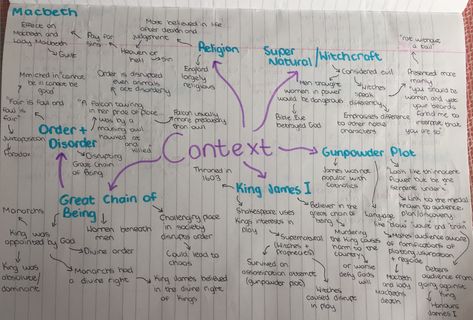 Macbeth
Effect on
Macbeth and
Lady Macbeth
Guilt
Pay for
sins
More believed in life
after death and
judgement
Heaven or
hell
Religion
England
largely
religious
Super
Natural / Witchcraft
Considered evil
Men thought
women in power
would be dangerous
witches
speak
differently
Emphasises difference
to other normal
characters
betrayed God
"not without
a tail"
Presented more
manly
"you should be
women and yet
your beards
forbid me to
interpret that
you are so"
cannot be
good"
"Fair is foul and
foul is
fair"
Juxtaposition
Paradox
Order +
Disorder
Order is disrupted
even animals
are disorderly
"A falcon towering
in her pride of place
was by a
mousing owl
hawked at
and
killed"
Falcon usually
more predatory
than owl
Disrupting
Great Chain
of Being
Context
Gunpowder Plot
James was not
popular with
catholics
Look like th'innocent
flower but be the
serpent under't
Link to the medal
known to audience,
plan/discovery
Language
like blood vault and
Makes audience aware
of complications of
plotting usurpation
+ regicide
Macbeth
and lady
Macbeth's
death
Deters
audience from
going against
King
Honours
James I
Throned in
1603
King James I
Shakespeare uses
Kings interests in
play
Supernatural
(Witches +
Prophecies)
Survived an
assassination attempt
(gunpowder plot)
Believer in the
great chain of being
Murdering the King causes
harm to the
country
or worse
defy Gods
will
Witches
caused disrupt
in play
Great Chain of
Being
Monarchs
King was
appointed by God
King was
absolute/
dominant
Women beneath
men
Divine order
Monarchs had
a divine right
Challenging place
in society
disrupts order
Could lead to
chaos
King James believed
in the divine right
of Kings